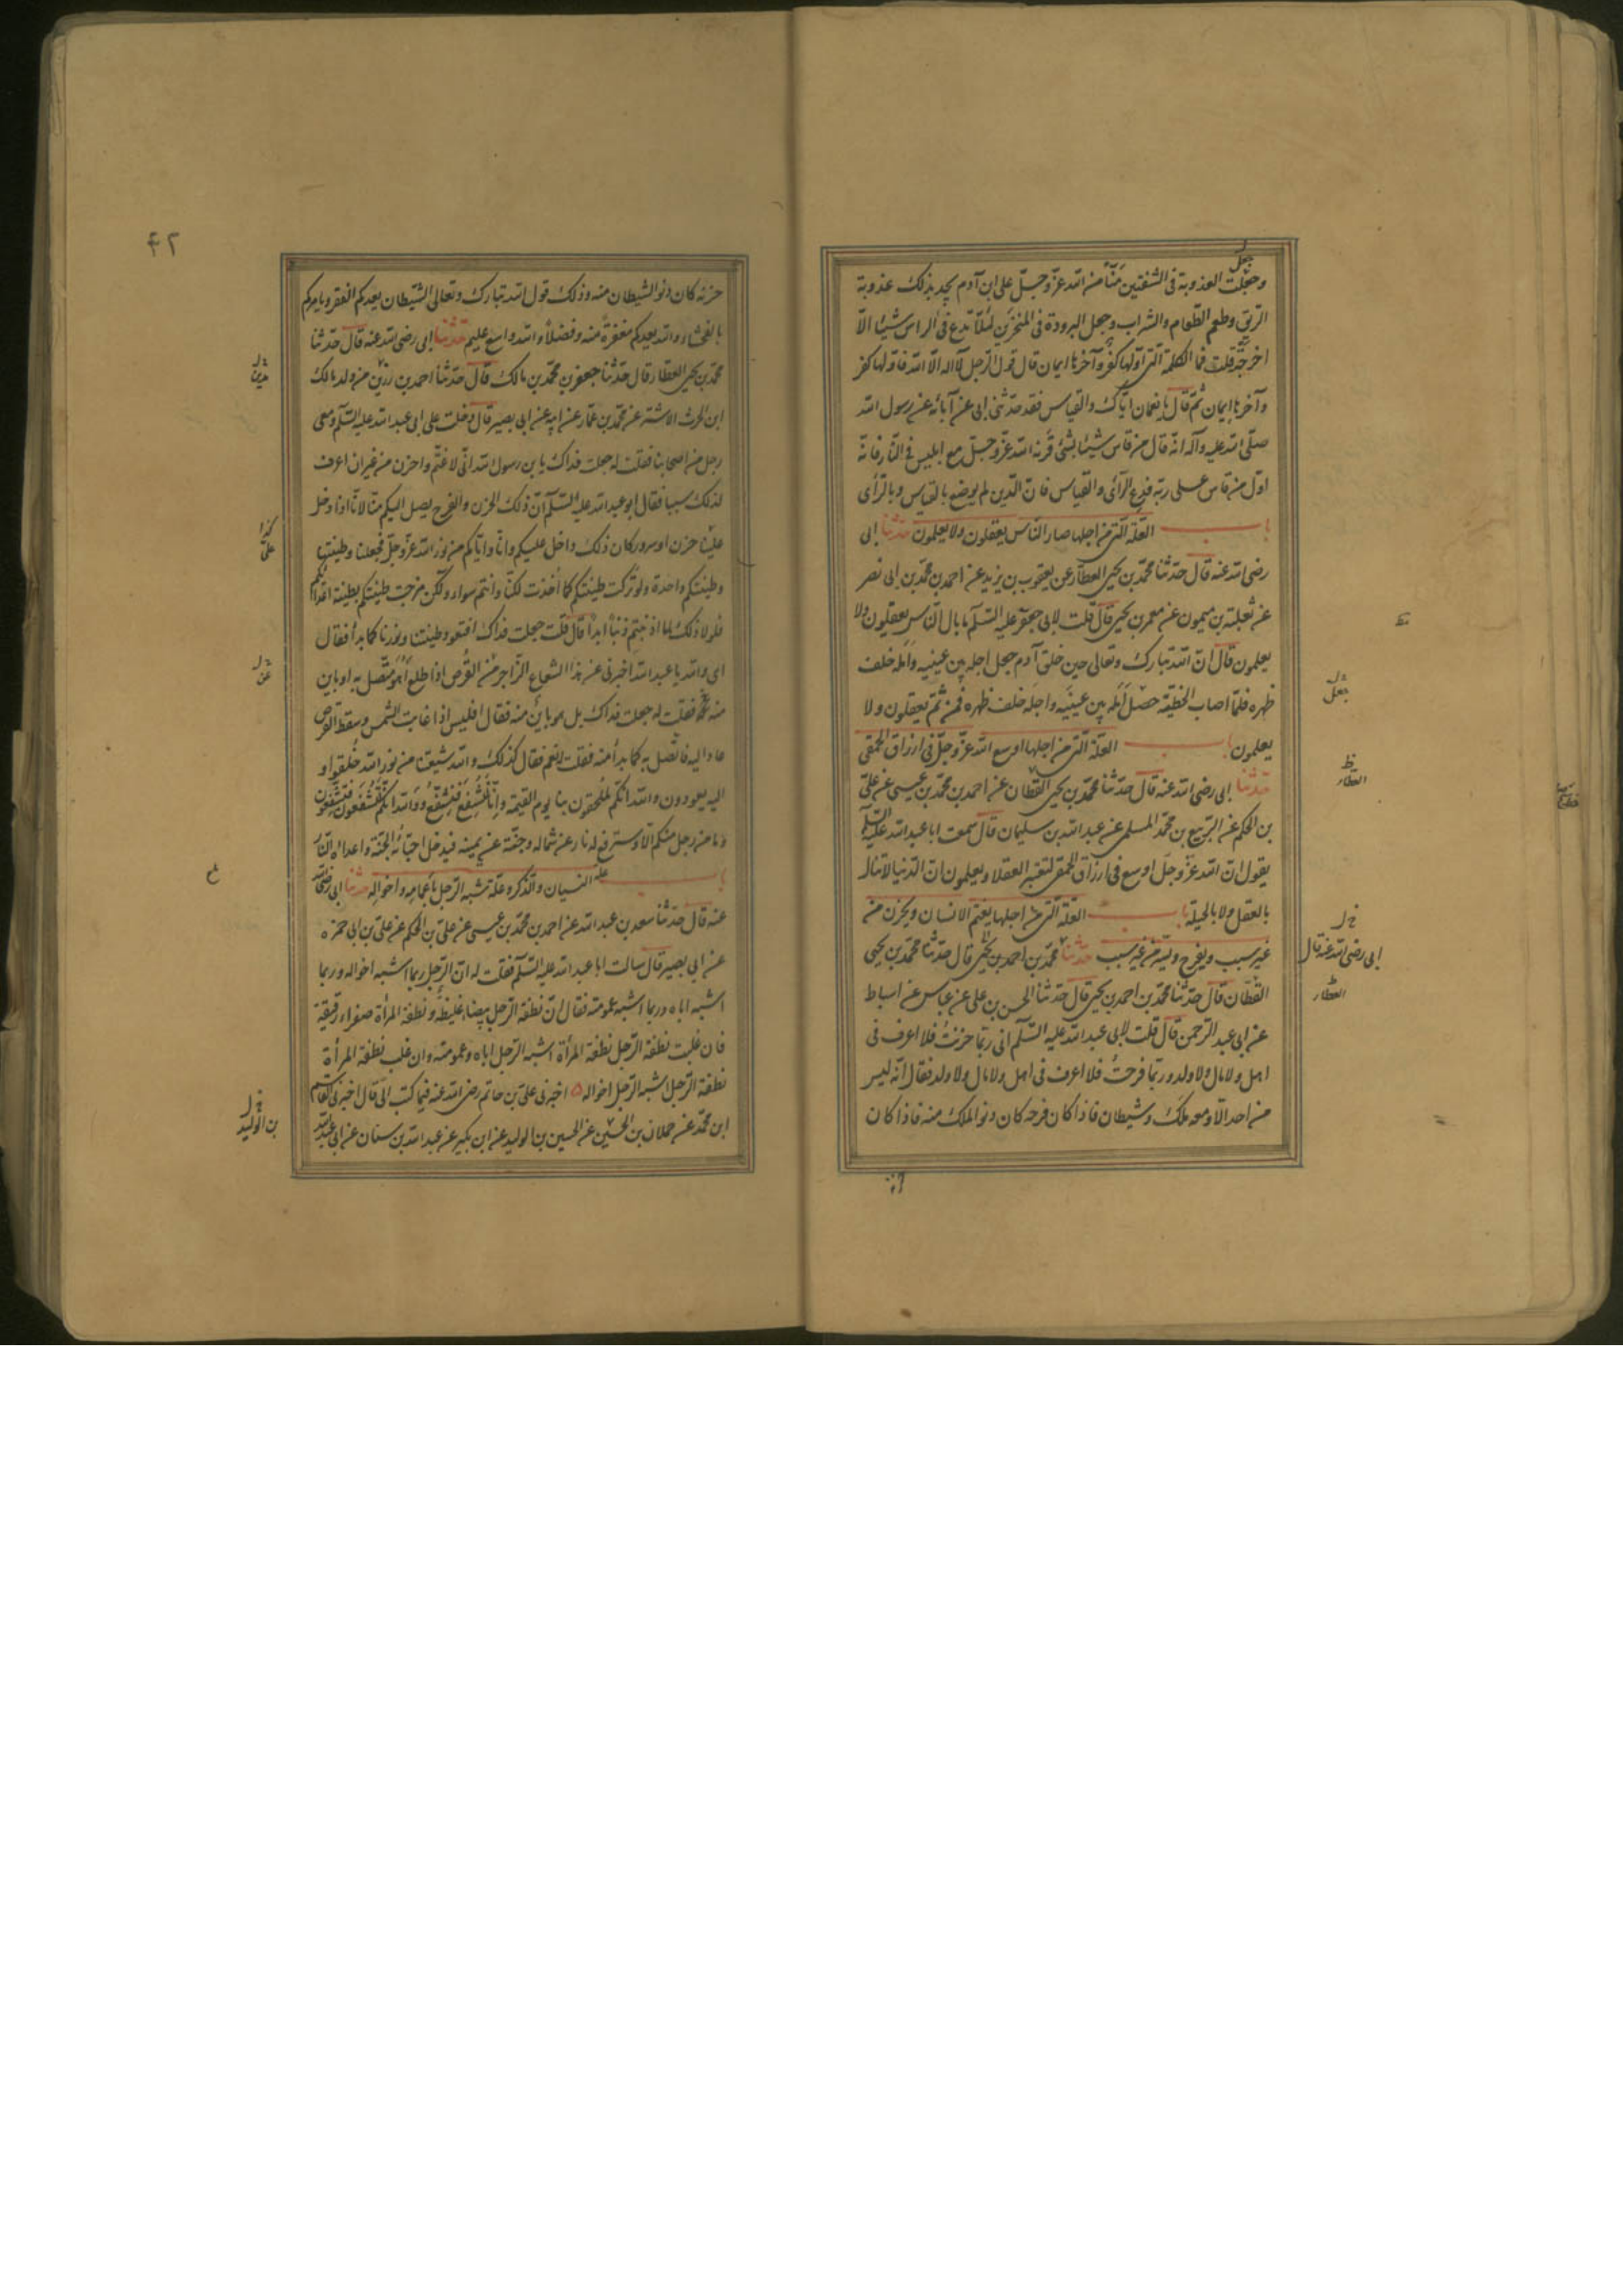 وجعلت العذوبة فى الشفتين منّاً من الله عزّ وجلّ على ابن آدم يجد بذلك عذوبة
جعل
الريق وطعم الطعام والشراب وجعل البرودة فى المنخرين لئلّا تدع فى الراس شيئا الّا
اخرجته قلت فما الكلمة التى اوّلها كفر وآخرها ايمان قال قول الرجل لا اله الّا الله فاولها كفر
وآخرها ايمان ثم قال يا نعمان ايّاك والقياس فقد حدثنى ابى عن آبائه عن رسول الله
صلّى الله عليه وآله انّه قال من قاس شيئا بشئ قرنه الله عزّ وجلّ مع ابليس فى النار فانّه
اوّل من قاس على ربّه فدع الرأى والقياس فانّ الدين لم يوضع بالقياس وبالرأى
باب العلّة التى من اجلها صار النّاس يعقلون ولا يعلمون حدثنا ابى
رضى الله عنه قال حدّثنا محمّد بن يحيى العطّار عن يعقوب بن يزيد عن احمد بن محمّد بن ابى نصر
عن ثعلبة بن ميمون عن معمر بن يحيى قال قلت لابى جعفر عليه السّلم ما بال النّاس يعقلون ولا
يعلمون قال انّ الله تبارك وتعالى حين خلق آدم جعل اجله بين عينيه وامله خلف
ظهره فلمّا اصاب الخطيئة حصل امله بين عينيه واجله خلف ظهره فمن ثمّ يعقلون ولا
خ ل
جعل
يعلمون باب العلّة التى من اجلها اوسع الله عزّ وجلّ فى ارزاق الحمقى
حدّثنا ابى رضى الله عنه قال حدّثنا محمّد بن يحيى القطان عن احمد بن محمّد بن عيسى عن علىّ
ظ
العطار
بن الحكم عن الربيع بن محمّد المسلمى عن عبد الله بن سليمان قال سمعت ابا عبد الله عليه السّلم
يقول انّ الله عزّ وجلّ اوسع فى ارزاق الحمقى لتعتبر العقلا ويعلمون انّ الدنيا لاتنال
بالعقل ولا بالحيلة باب العلّة التى من اجلها يغتمّ الانسان ويحزن من
غير سبب ويفرح ويسرّ من غير سبب حدّثنا محمّد بن احمد بن يحيى قال حدّثنا محمّد بن يحيى
خ ل
ابى رضى الله عنه قال
ظ
العطار
القطّان قال حدّثنا محمّد بن احمد بن يحيى قال حدّثنا الحسن بن على عن عباس عن اسباط
عن ابى عبد الرحمن قال قلت لابى عبد الله عليه السّلم انى ربّما حزنت فلا اعرف فى
اهل ولا مال ولا ولد وربّما فرحت فلا اعرف فى اهل ولا مال ولا ولد فقال انّه ليس
من احد الّا ومعه ملك وشيطان فاذا كان فرحه كان دنو الملك منه فاذا كان
٤٢
حزنه كان دنو الشيطان منه وذلك قول الله تبارك وتعالى الشيطان يعدكم الفقر ويامركم
بالفحشاء والله يعدكم مغفرة منه وفضلا والله واسع عليم حدّثنا ابى رضى الله عنه قال حدّثنا
محمّد بن يحيى العطار قال حدّثنا جعفر بن محمّد بن مالك قال حدّثنا احمد بن رزين من ولد مالك
ابن الحرث الاشتر عن محمّد بن عمّار عن ابيه عن ابى بصير قال دخلت على ابى عبد الله عليه السّلم ومعى
رجل من اصحابنا فقلت له جعلت فداك يا بن رسول الله انّى لاغتمّ واحزن من غير ان اعرف
لذلك سببا فقال ابو عبد الله عليه السّلم انّ ذلك الحزن والفرح يصل اليكم منّا لانّا اذا دخل
علينا حزن او سرور كان ذلك داخل عليكم وانّا وايّاكم من نور الله عزّ وجلّ فجعلنا وطينتنا
وطينتكم واحدة ولو تركت طينتكم كما أُخذت لكنّا وانتم سواء ولكن مزجت طينتكم بطينة اعدائكم
فلولا ذلك لما اذنبتم ذنبا ابدا قال قلت جعلت فداك افتعود طينتنا ونورنا كما بدأ فقال
اى والله يا عبد الله اخبرنى عن هذا الشعاع الزاجر من القرص اذا طلع أهو متّصل به او باين
منه فقلت له جعلت فداك بل هو باين منه فقال افليس اذا غابت الشمس وسقط القرص
عاد اليه فاتّصل به كما بدأ منه فقلت له نعم فقال كذلك والله شيعتنا من نور الله خُلقوا و
اليه يعودون والله انّكم لملحقون بنا يوم القيمة وانّا لنشفع فنشفّع ووالله انكم لتشفعون فتشفّعون
وما من رجل منكم الّا وسترفع له نار عن شماله وجنّة عن يمينه فيدخل احبّائه الجنّة واعداه النّار
باب علّة النسيان والذكر وعلّة تشبه الرجل بأعمامه واخواله حدّثنا ابى رضى الله
عنه قال حدّثنا سعد بن عبد الله عن احمد بن محمّد بن عيسى عن علىّ بن الحكم عن علىّ بن ابى حمزه
عن ابى بصير قال سالت ابا عبد الله عليه السّلم فقلت له انّ الرجل ربما اشبه اخواله وربما
اشبه اباه وربما اشبه عمومته فقال انّ نطفة الرجل بيضاء غليظة ونطفة المرأة صفراء رقيقة
فان غلبت نطفة الرجل نطفة المرأة اشبه الرجل اباه وعمومته وان غلب نطفة المرأة
نطفة الرجل اشبه الرجل اخواله ٥ اخبرنى علىّ بن حاتم رضى الله عنه فيما كتب الىّ قال اخبرنى القاسم
ابن محمّد عن حملان بن الحسين عن الحسين بن الوليد عن ابن بكير عن عبد الله بن سنان عن ابى عبد الله
خ ل
بن الوليد